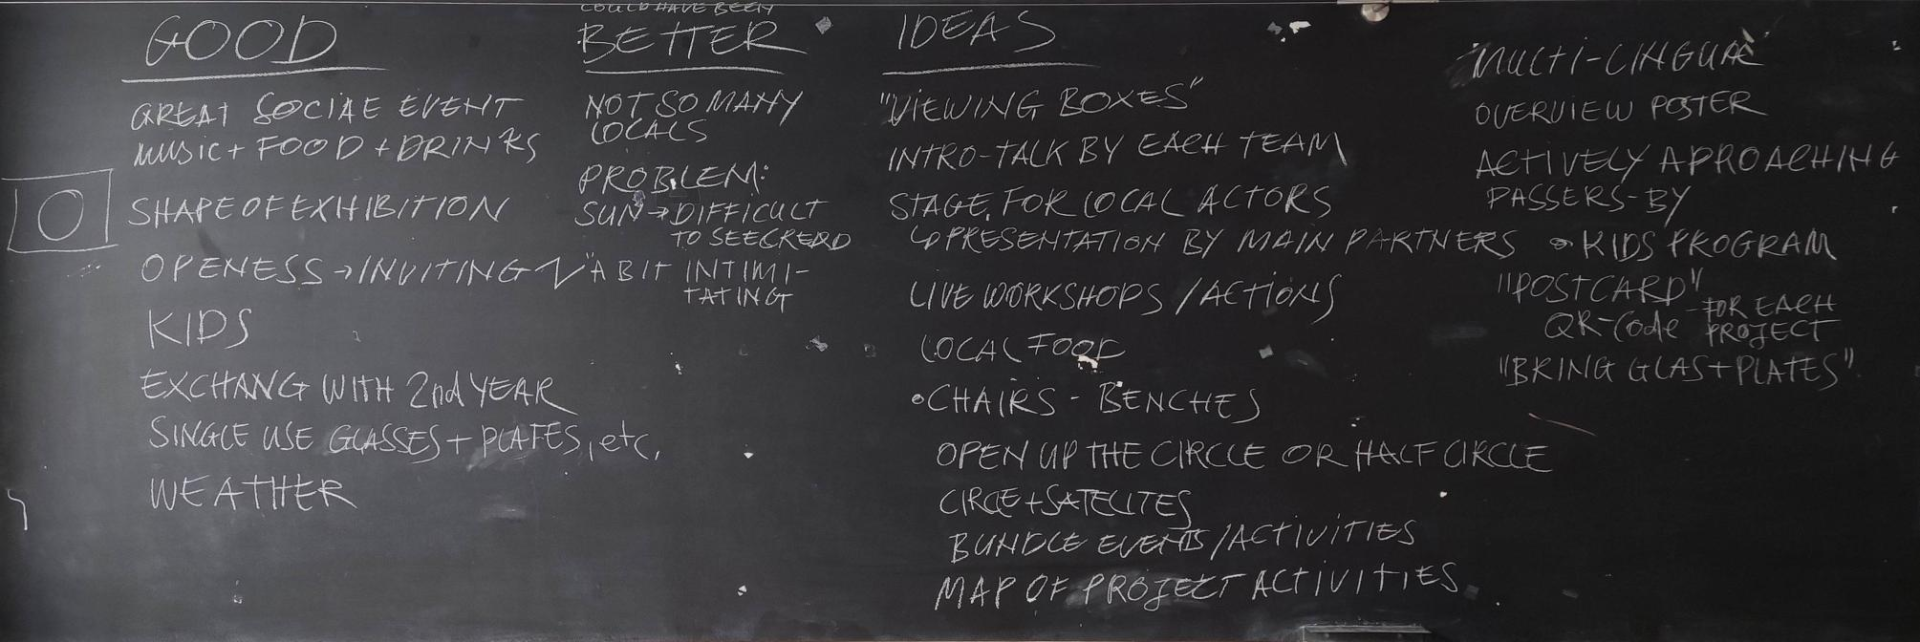 GOOD
GREAT SOCIAL EVENT
MUSIC + FOOD + DRINKS
SHAPE OF EXHIBITION
OPENESS → INVITING
KIDS
EXCHANG WITH 2nd YEAR
SINGLE USE GLASSES + PLATES, etc.
WEATHER
COULD HAVE BEEN
BETTER
NOT SO MANY
LOCALS
PROBLEM:
SUN → DIFFICULT
TO SEE
"A BIT INTIMI-
TATING
IDEAS
"VIEWING BOXES"
INTRO-TALK BY EACH TEAM
STAGE FOR LOCAL ACTORS
↳ PRESENTATION BY MAIN PARTNERS
LIVE WORKSHOPS / ACTIONS
LOCAL FOOD
• CHAIRS - BENCHES
OPEN UP THE CIRCLE OR HALF CIRCLE
CIRCLE + SATELITES
BUNDLE EVENTS / ACTIVITIES
MAP OF PROJECT ACTIVITIES
MULTI-LINGUAL
OVERVIEW POSTER
ACTIVELY APROACHING
PASSERS-BY
• KIDS PROGRAM
"POSTCARD"
- FOR EACH
QR-Code PROJECT
"BRING GLAS + PLATES"